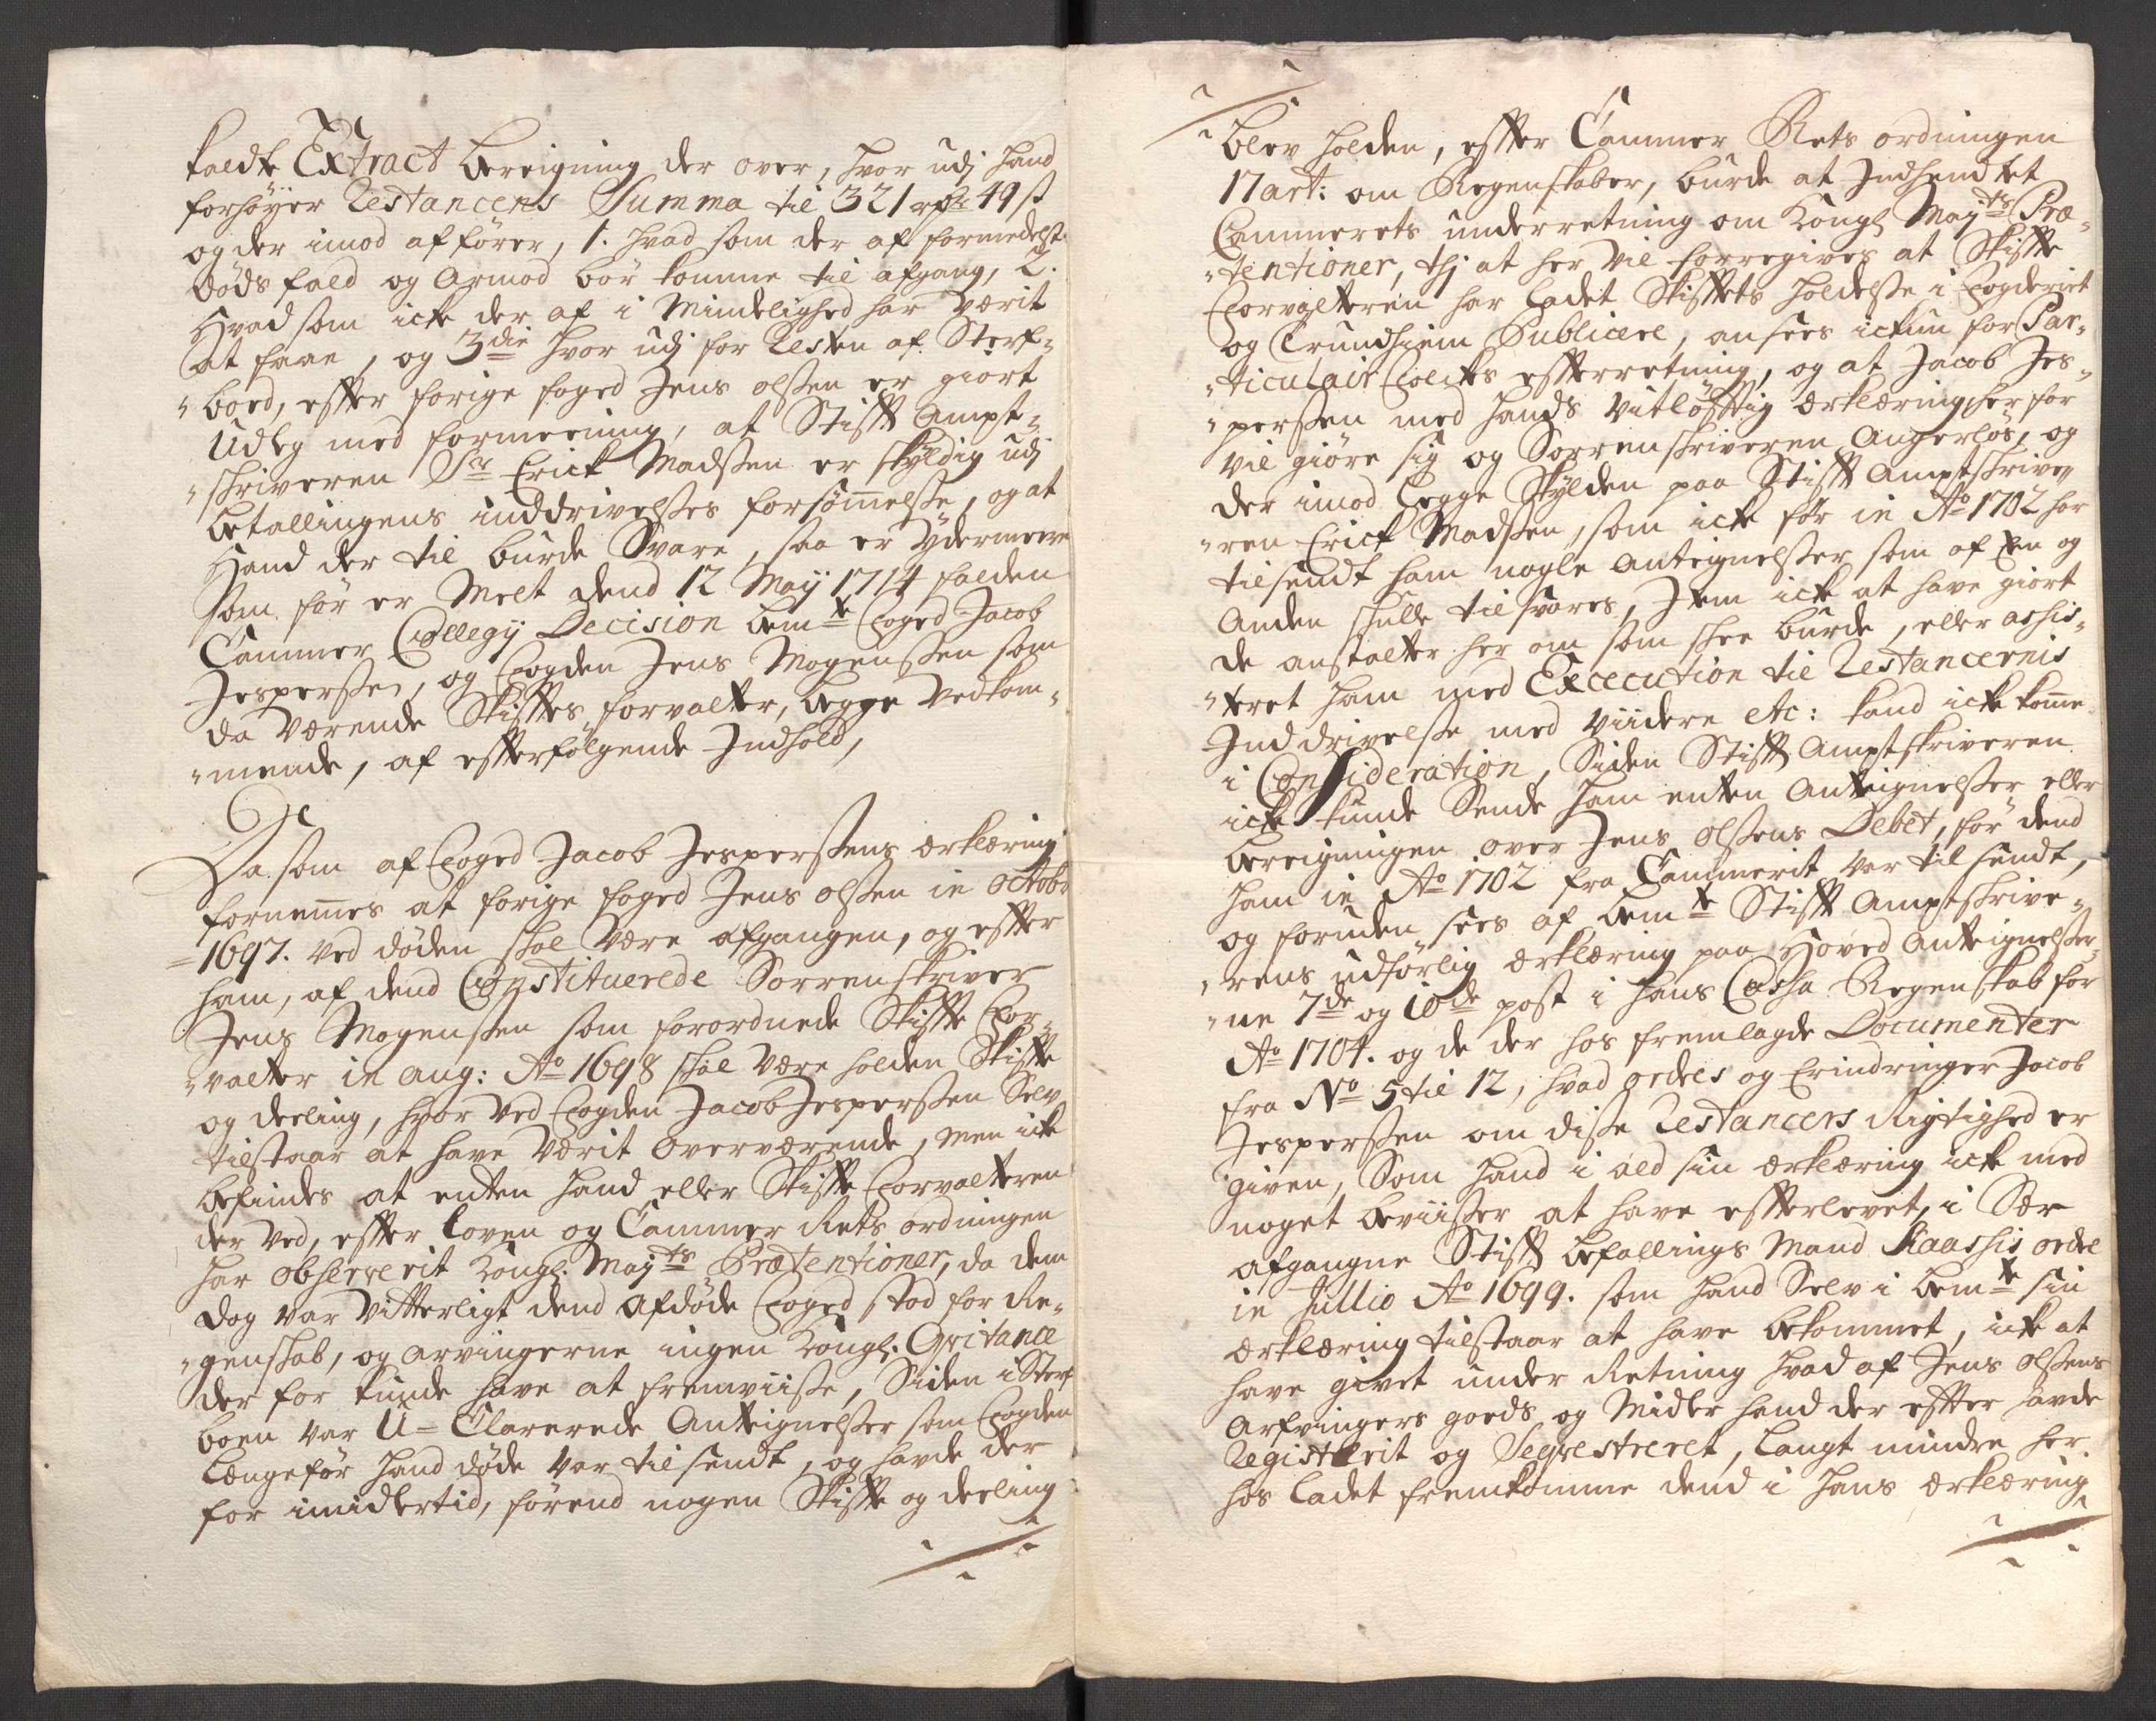 kaldte Extract bereigning der over, hvor udj hand
forhöyer Restancens Summa til 321 rdr 49 s
og der imod affører, 1. hvad som der af formedelst
dødsfald og armod bør komme til afgang, 2.
Hvad som icke der af i Mindelighed har værit
at faae, og 3die hvor udj for Resten af Sterf-
"boed, effter forige foged Jens olssen er giort
Udleg med formeening, at Stifft Ampt-
"schriveren Sr Erick Madssen er skyldig udj
betallingens inddrivelses forsømelse, og at
Hand der til burde Svare, saa er ydermeere
som før er Melt dend 12 Maÿ 1714 falden
Cammer Collegij Decision bemte Foged Jacob
Jesperssen, og Fogden Jens Mogenssen som
da værende Skifftes forvalter, begge vedkom-
"mende, af effterfølgende Indhold,
Da som af Foged Jacob Jesperssens erklæring
fornemes at forige foged Jens olssen in octobr
1697. ved døden skal være afgangen, og effter
ham, af dend Constituerede Sorrenskriver
Jens Mogenssen som forordnede Skiffte For-
"valter in aug: Ao 1698 skal være holden Skiffte
og deeling, hvor ved Fogden Jacob Jesperssen Selv
tilstaar at have værit overværende, men icke
befindes at enten hand eller Skiffte Forvalteren
der ved, effter loven og Cammer Rets ordningen
har observerit Kongl. Mayts Prætentioner, da dem
dog var vitterligt dend afdøde Foged stod for Re-
"genskab, og arvingerne ingen Kongl: Qvitance
der for kunde have at fremviisse, Siden i Sterf
boen var U-Clarerede Anteignelsser som Fogden
længe før hand døde var tilsendt, og havde der
for imidlertid, førend nogen Skiffte og deeling
blev holden, effter Cammer Rets ordningen
17 art: om Regenskaber, burde at Indhendtet
Cammerets underretning om Kongl Mayts Præ-
"tentioner, thj at her vil forregives at Skiffte
Forvalteren har ladet Skifftets holdelse i Fogderiet
og Trundhiem Publicere, ansees ickun for Par-
"ticulair Folckes effterretning, og at Jacob Jes-
"perssen med hands vitløfftig erklæring her for
vil giøre sig og Sorrenschriveren Angerløs, og
der imod legge Skylden paa Stifft Amptskrive-
"ren Erick Madssen, som icke før in Ao 1702 har
tilsendt ham nogle anteignelsser som af En og
Anden skulle tilsvares, Item icke at have giort
de anstalter her om som skee burde, eller assis-
"teret ham med Excecution til Restancernis
Inddrivelse med viidere etc: kand icke kome
i Consideration, Siden Stifft Amptskriveren
icke kunde Sende ham enten Anteignelsser eller
bereigningen over Jens olssens Debet, før dend
ham in Ao 1702 fra Cammerit var tilsendt,
og foruden sees af bemte Stifft Amptskrive-
"rens udførlig erklæring paa Hoved Anteignelsser-
"ne 7de og 10de post i hans Cassa Regenskab for
Ao 1704. og de der hos fremlagde Documenter
fra No 5 til 12, hvad ordres og Erindringer Jacob
Jesperssen om disse Restancers Rigtighed er
given, Som hand i ald sin erklæring icke med
noget beviisser at have effterlevet, i Sær
afgangne Stifft befallings Mand Kaassis ordre
in Jullio Ao 1699. som hand Selv i bemte sin
erklæring tilstaar at have bekommet, icke at
have givet under Retning hvad af Jens olssens
Arfvingers goeds og Midler hand der effter havde
Registerit og Seqvestreret, langt mindre her
hos ladet fremkomme dend i hans erklæring